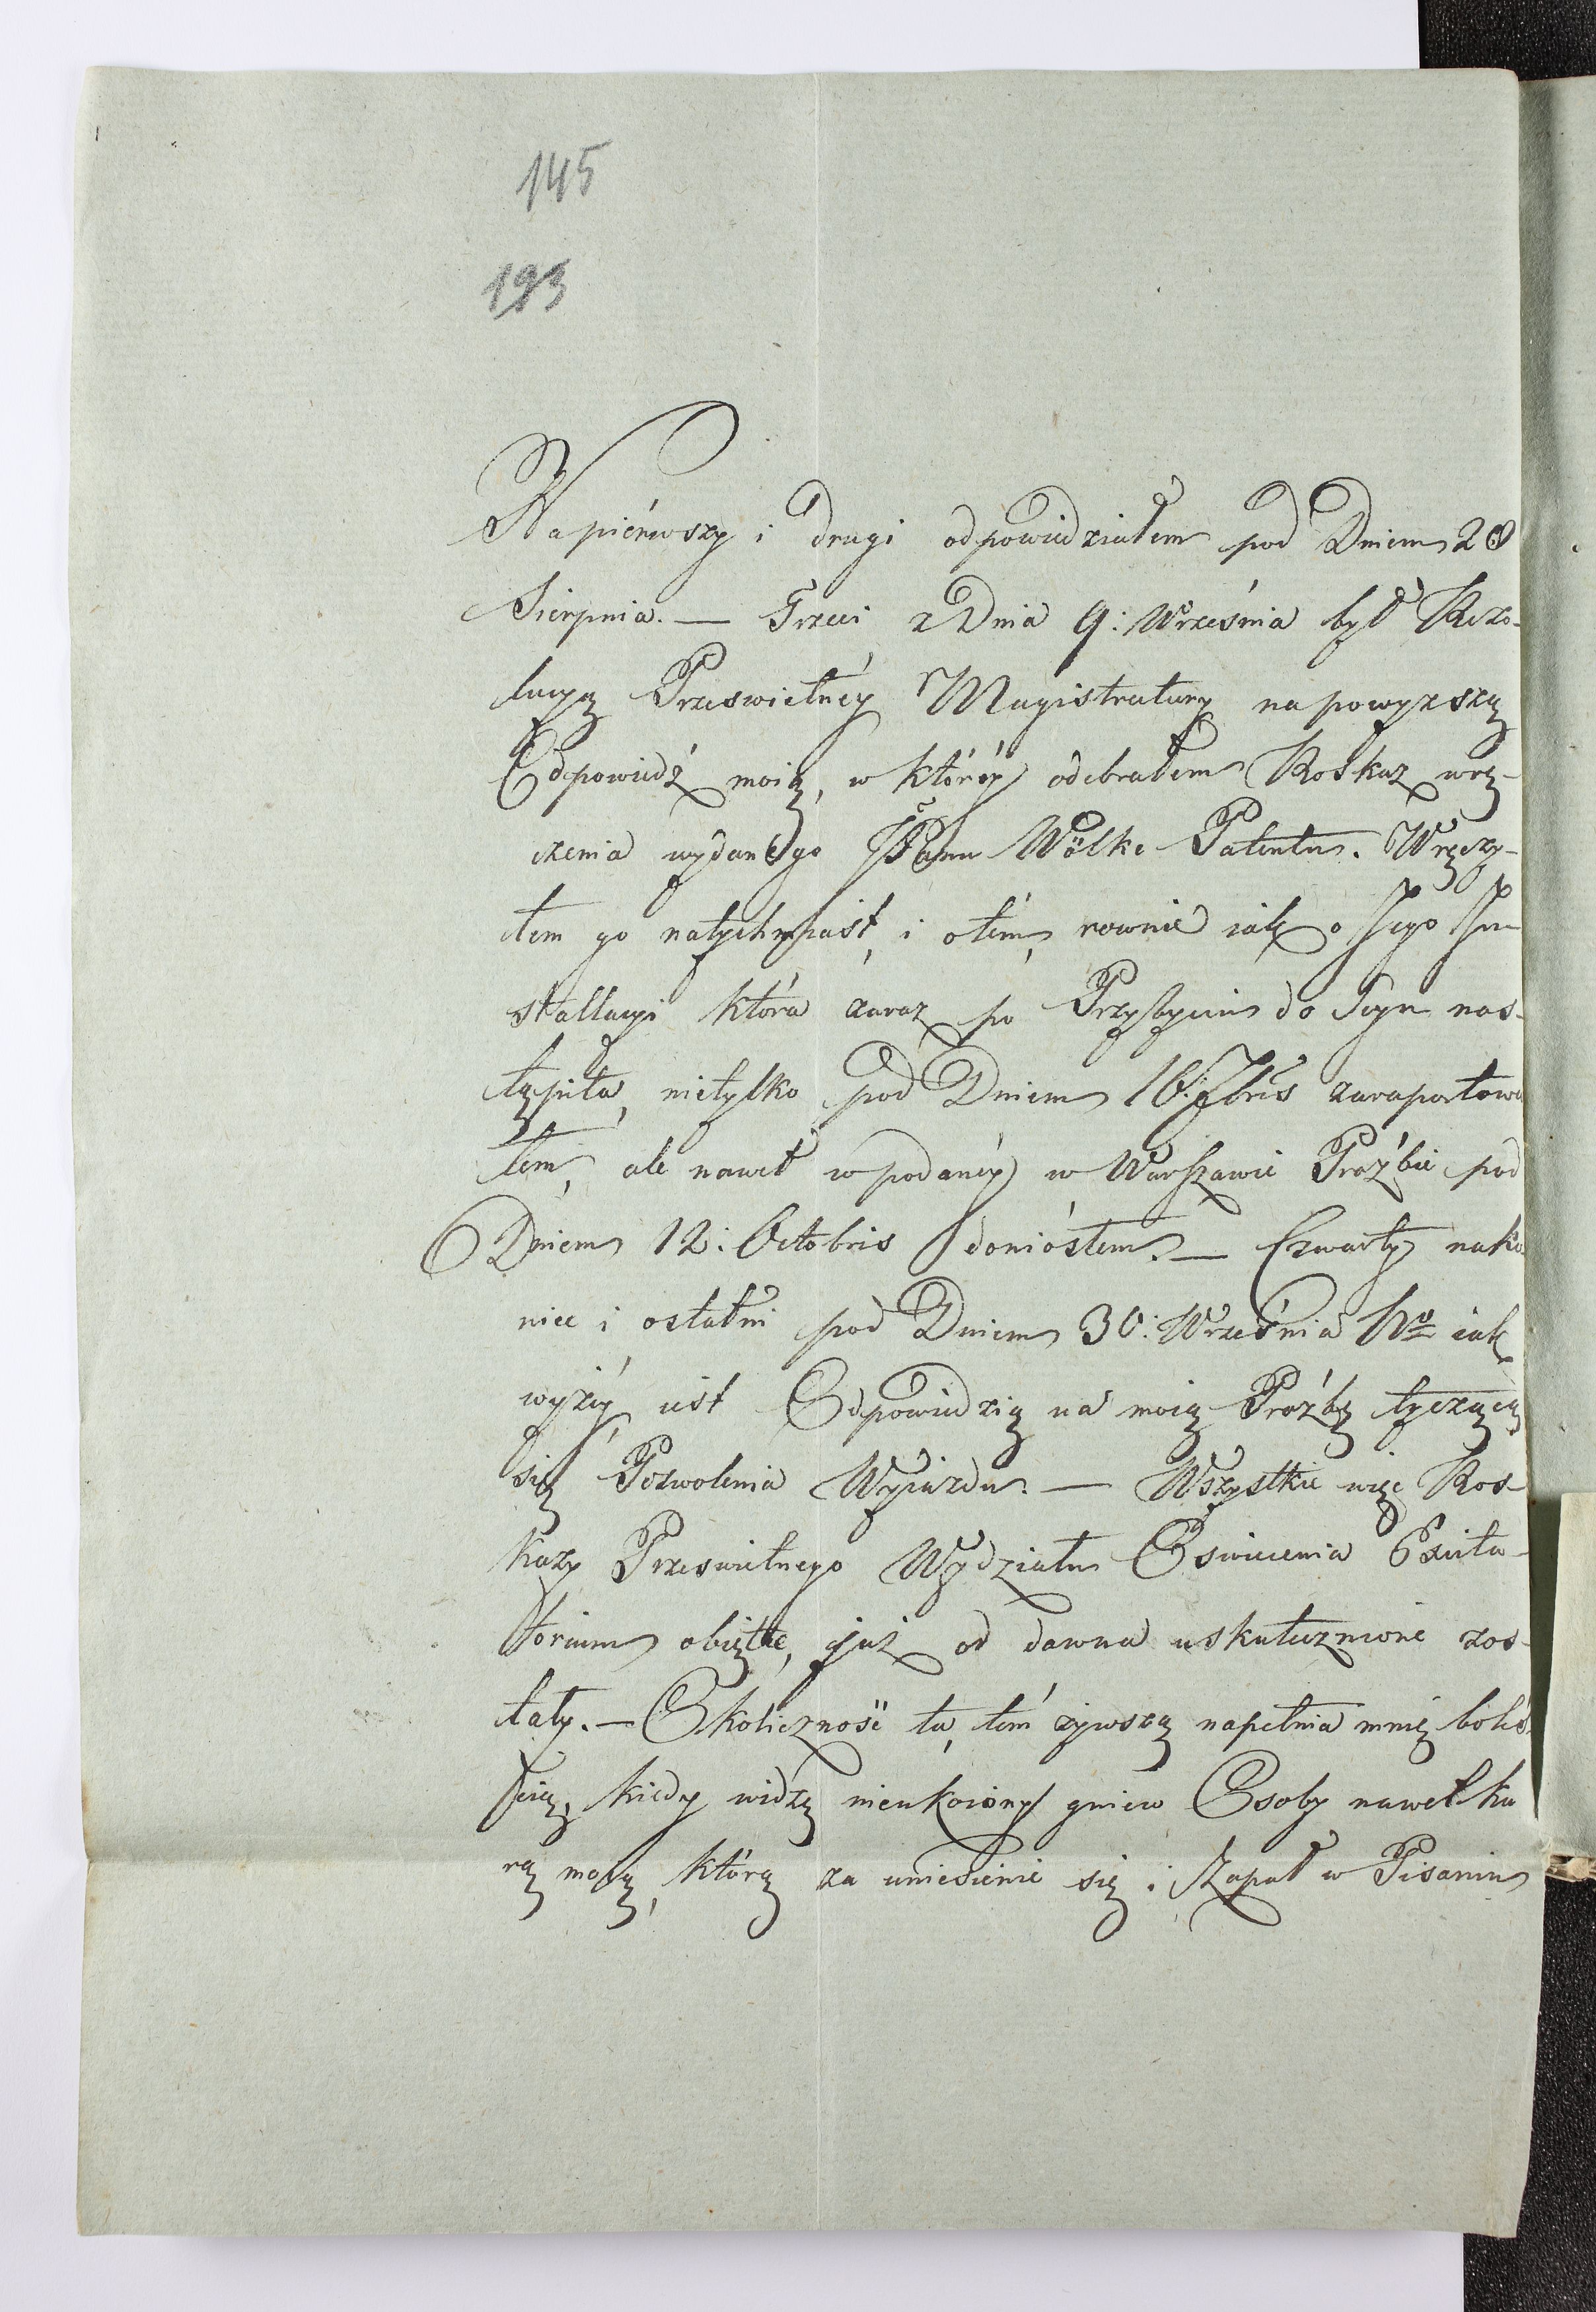 145
193
Na pierwszy i drugi odpowiedziałem pod Dniem 28
Sierpnia. — Trzeci z Dnia 9: Września był Rezo-
lucyą Prześwietnéy Magistratury na powyzszą
Odpowiedź moię, w któréy odebrałem Roskaz wrę-
czenia wydanego JPanu Wölke Patentu. Wręczy-
łem go natychmiast, i o tém, rownie iak o Jego In-
stallacyi która zaraz po Przybyciu do Seyn nas-
tąpiła, nietylko pod Dniem 16: 7bris zaraportowa
łem, ale nawet w podanéy w Warszawie Proźbie pod
Dniem 12: Octobris doniósłem. — Czwarty nako
niec i ostatni pod Dniem 30: Września iak
wyżéy iest Odpowiedzią na moię Prózbę tyczącą
się Pozwolenia Wyiazdu. — Wszystkie więc Ros-
kazy Prześwietnego Wydziału Oswiecenia Excita-
torium obięte, już od dawna uskutecznione zos-
tały. — Okoliczność ta, tém żywszą napełnia mnię boleś
cią, kiedy widzę nieukoiony gniew Osoby nawet ka
rą mocą, którą za uniesienie się i Zapał w Pisaniu